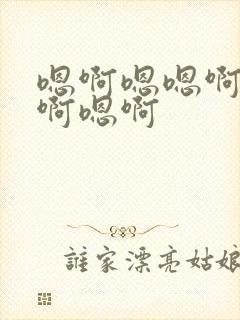 嗯啊嗯嗯啊
啊嗯啊
誰家漂亮姑娘